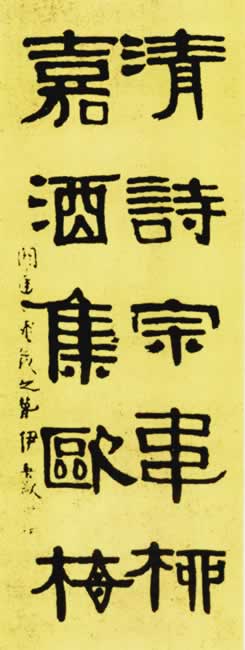 清詩宗韋柳
嘉酒集歐梅
伊秉綬